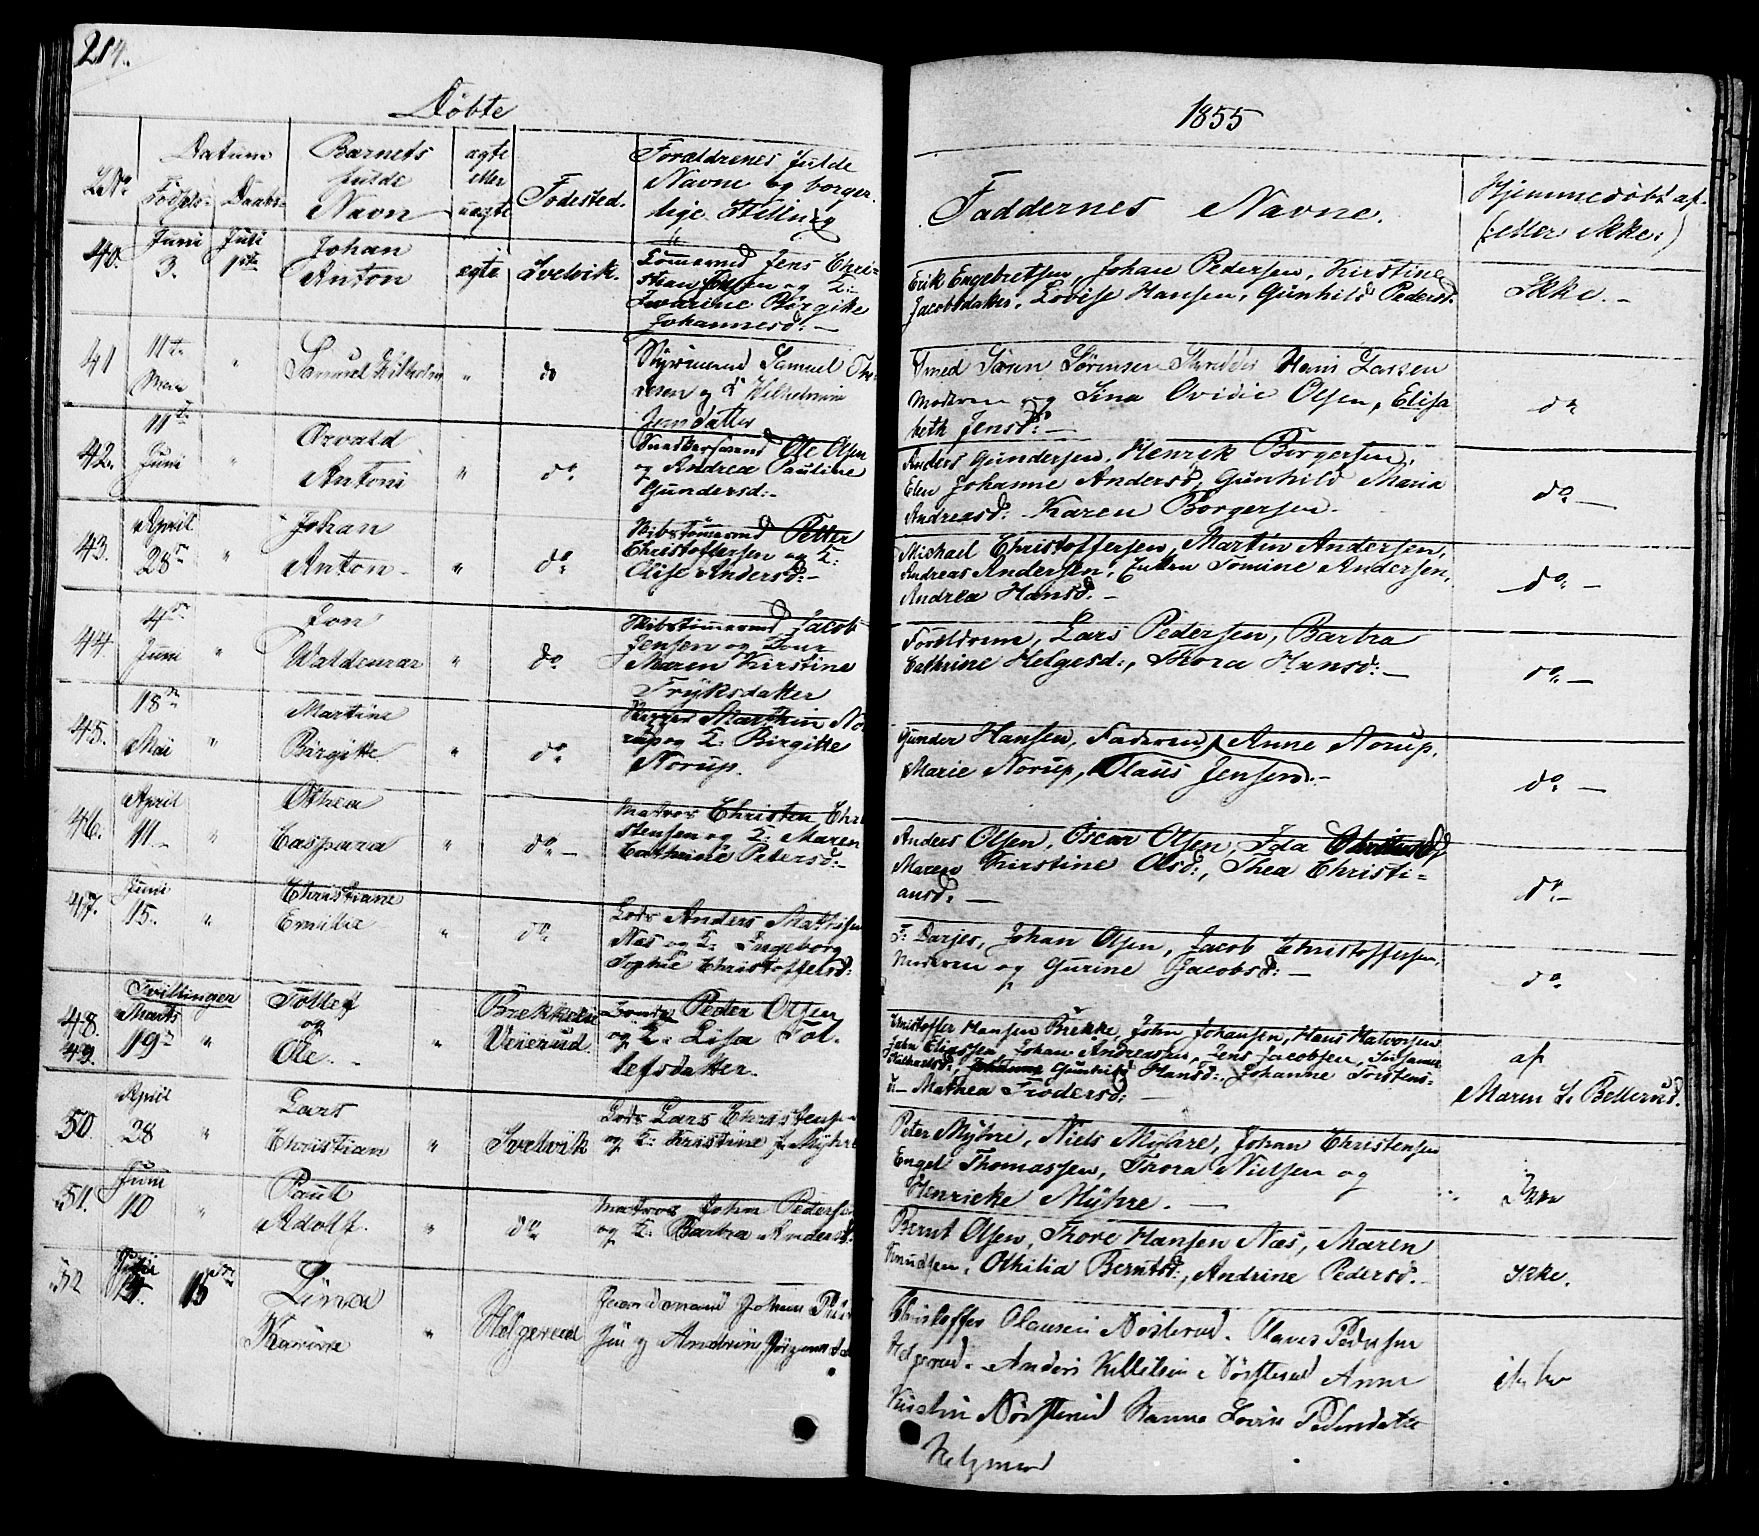 214.
Døbte
1855
No
Datum
Fødsels- Daabs-
Barnets
fulde
Navn
ægte
eller
uægte
Fødested.
Forældrenes fulde
Navne og borger-
lige Stilling
Faddernes Navne.
Hjemmedøbt af
(:eller ikke:)
40. Juni 3. Juli 1ste
Johan
Anton
egte Svelvik.
Tømmermd Jens Chri-
stian og K:
Birgitte
Johannesd: —
Erik Engebretsen, Johan Pedersen, Kirstine
Jacobsdatter, Lovise Hansen, Gunhild Pedersd:
Ikke. —
41 11te Mai "
Samuel Wilhelm " do
Styrmand Samuel Tho-
resen og K Wilhelmine
Jensdatter
Smed Søren Sørensen Skredder Hans Larsen
Moderen og Lina Ovidie Olsen, Elisa
beth Jensd: —
do
42. 11te Juni "
Orvald
Antoni " do
Ole Olsen
og Andrea Pauline
Gundersd: -
Anders Gundersen, Henrik Borgersen,
Elen Johanne Andersd, Gunhild Maria
Andreasd: Karen Borgersen -
do —
43. April 28de "
Johan
Anton - " do
Skibstømermd Petter
Christoffersen og K:
Elise Andersd: -
Michael Christoffersen, Martin Andersen,
Andreas Andersen, Tomine Andersen,
Andrea Hansd. -
do —
44. 4de Juni "
Jon
Waldemar " do
Skibstømermd Jacob
Jensen og Kone
Maren Kirstine
Fryksdatter
Forældrene, Lars Pedersen, Barbra
Cathrine Helgesd:, Thora Hansd: —
do —
45. 18de Mai "
Martine
Birgitte " do
Marthin No
rup og K: Birgitte
Norup.
Gunder Hansen, Faderen, Anne Norup,
Marie Norup, Olaus Jensen: -
do —
46. April 11 "
Othea
Caspara " do —
Matros Christen Chri
stensen og K: Maren
Cathrine Petersd: -
Anders Olsen, Oscar Olsen, Ida
Maren Kirstine Olsd:, Thea Christi=
ansd: —
do —
47. Juni 15. "
Christiane
Emilie " do
Lods Anders Mathisen
Næs og K: Ingeborg
Sophie Christoffersd:
F: Darjes, Johan Olsen, Jacob Christoffersen,
Moderen og Gurine Jacobsd: —
do
48. 49. Tvillinger Marts 19de "
Tollef
og
Ole. - "
Brekke
Veierud.
Peder Olsen
og K: Lisa Tol-
lefsdatter.
Christoffer Hansen Brekke, John Johansen, Hans Halvorsen
John Eliassen, Johan Andreassen, Jens Jacobsen,
Gunhild Hansd:, Johanne Torstens=
d - Mathea Frodersd: —
af
Maren L. Bellerud.
50. April 28 "
Lars
Christian " Svelvik
Lods Lars Christensen
og K: Kristine f. Myhre
Peter Myhre, Niels Myhre, Johan Christensen
Engel Thomassen, Thora Nielsen og
Henricke Myhre. —
Ikke
51. Juni 10 "
Paul
Adolf. " do
Matros John Pedersen
og K: Barbra Andersd:
Bernt Olsen, Thore Hansen Næs, Maren
Knudsen, Othilia Berntsd:, Andrine Pedersd: —
Ikke.
52 15de
Lina
Karine " Helgerud
Johan
og Andrine Jørgensdat
Christoffer Olausen Nøsterud. Olaus Pedersen
Helgerud. Anders Kittilsen Nøsterud Anne
Kirstin Nøsterud Hanna Lovise Pedersdatter
Helgerud
ikke